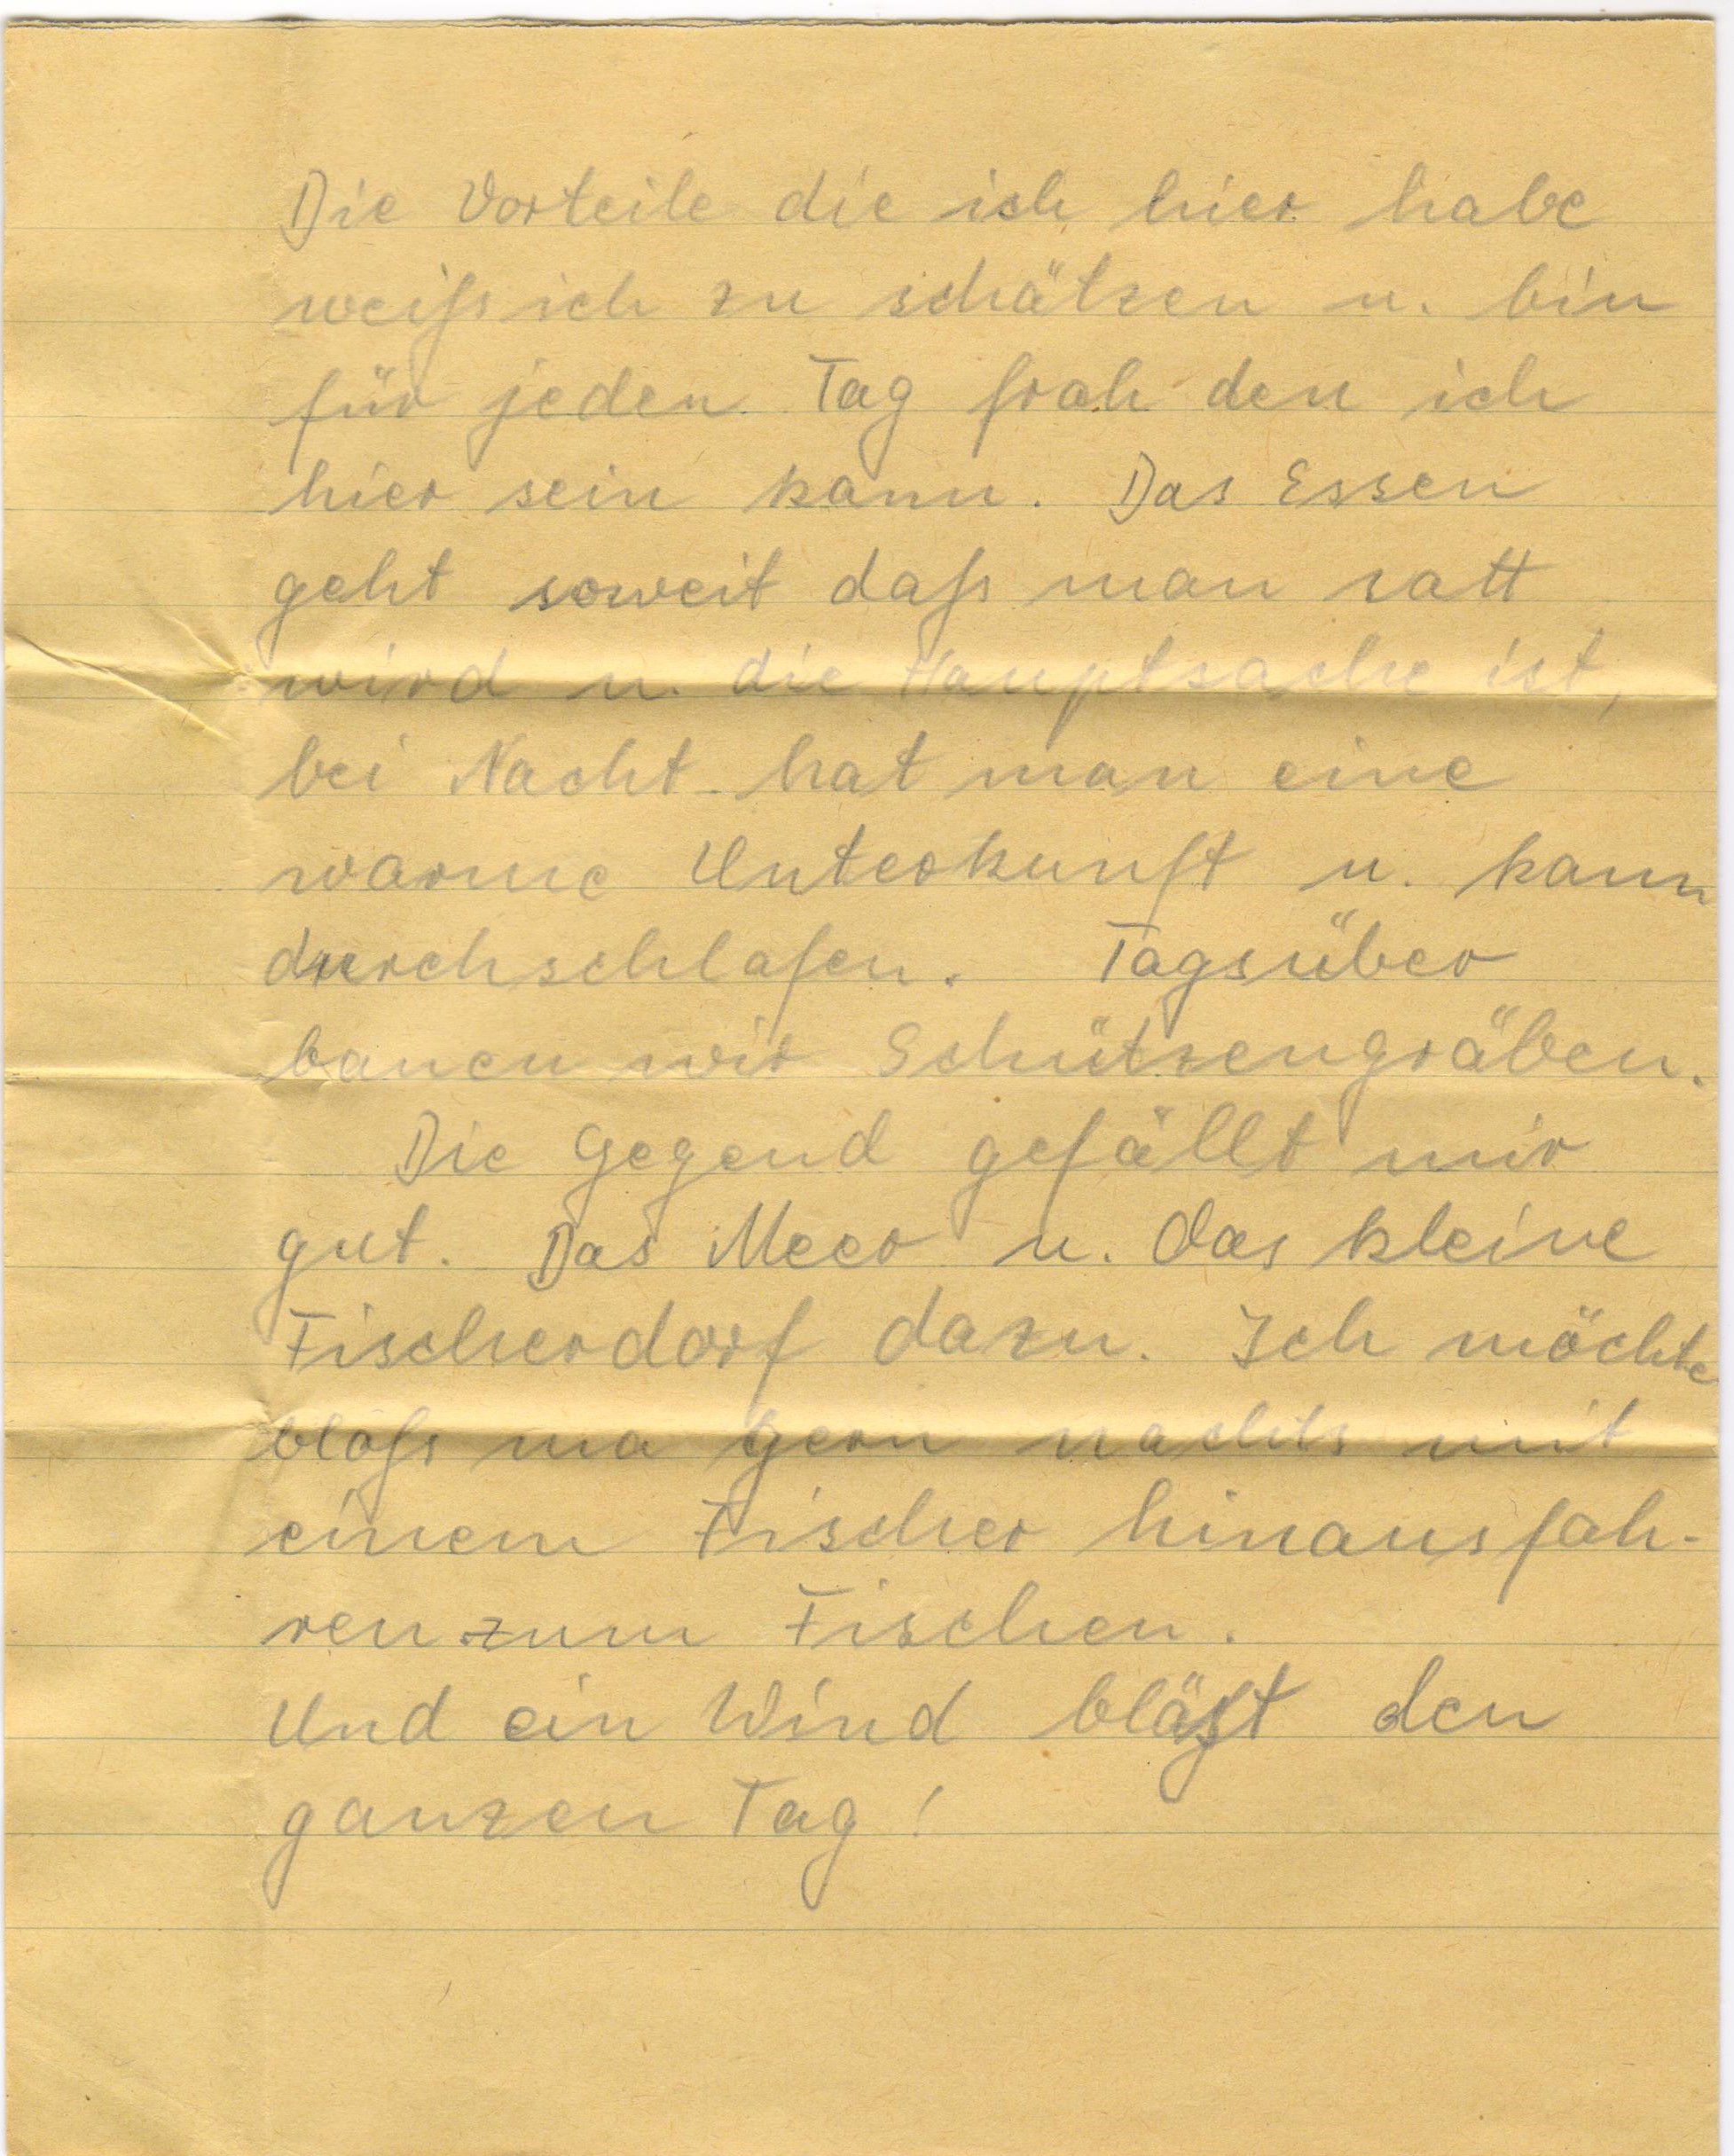 Die Vorteile die ich hier habe
weiß ich zu schätzen u. bin
für jeden Tag froh den ich
hier sein kann. Das Essen
geht soweit daß man satt
wird u. die Hauptsache ist,
bei Nacht hat man eine
warme Unterkunft u. kann
durchschlafen. Tagsüber
bauen wir Schützengräben.
Die Gegend gefällt mir
gut. Das Meer u. das kleine
Fischerdorf dazu. Ich möchte
bloß ma gern nachts mit
einem Fischer hinausfah-
ren zum Fischen.
Und ein Wind bläst den
ganzen Tag!